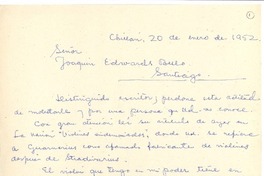 1
Chillán, 20 de enero de 1952.
Señor
Joaquín Edwards Bello
Santiago.
Distinguido escritor, perdone esta
de molestarle y por una persona que Ud. no conoce.
Con gran atención leí su artículo de ayer en
La Nación "Vidrios ", donde Ud. se refiere
a Guarnerius como afamado fabricante de violines
después de Stradivarius.
El violín que tengo en mi poder tiene en